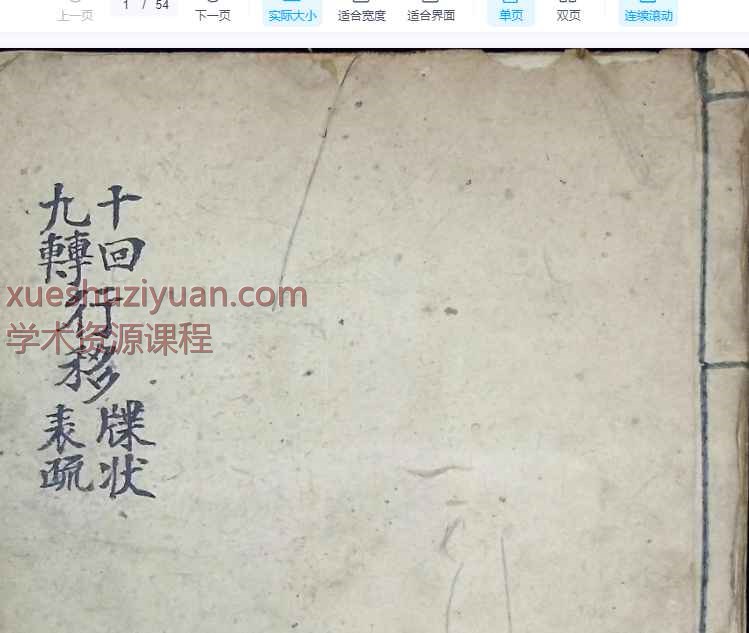 上一页
1 / 54
下一页
实际大小
适合宽度
适合界面
单页
双页
连续滚动
十回
九轉
行移
牒状
表疏
xueshuziyuan.com
学术资源课程